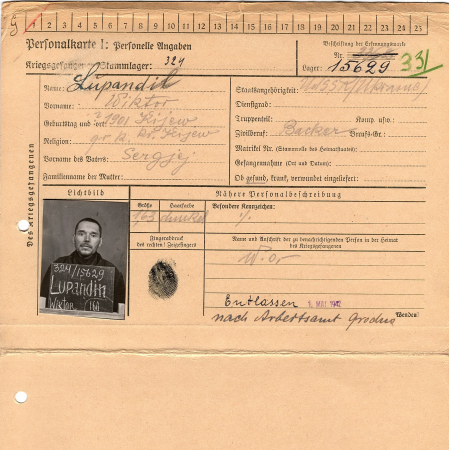 1 2 3 4 5 6 7 8 9 10 11 12 13 14 15 16 17 18 19 20 21 22 23 24 25
Personalkarte I: Personelle Angaben
Kriegsgefangenen-Stammlager: 324
Beschriftung der Erkennungsmarke
Nr.
Lager: 15629 331
Des Kriegsgefangenen
Name: Lupandil
Vorname: Wiktor
Geburtstag und -ort: 1901 Kijew
Religion: gr. K. Kijew
Vorname des Vaters: Sergjej
Familienname der Mutter:
Staatsangehörigkeit: UdSSR/Ukraine/
Dienstgrad:
Truppenteil: Komp. usw.:
Zivilberuf: Backer Berufs-Gr.:
Matrikel Nr. (Stammrolle des Heimatstaates):
Gefangennahme (Ort und Datum):
Ob gesund, krank, verwundet eingeliefert:
Lichtbild
324/15629
Lupandin
Wiktor
Nähere Personalbeschreibung
Größe Haarfarbe
165 dunkel
Besondere Kennzeichen:
Fingerabdruck
des rechten! Zeigefingers
Name und Anschrift der zu benachrichtigenden Person in der Heimat
des Kriegsgefangenen
W. or
Entlassen 1. MAI 1942
nach Arbeitsamt Grodno
Wenden!